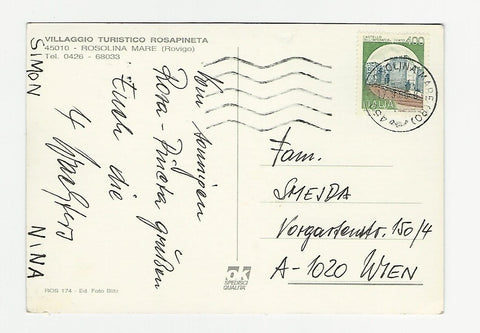 VILLAGGIO TURISTICO ROSAPINETA
45010 - ROSOLINA MARE (Rovigo)
Tel. 0426 - 68033
SIMON
Vom sonnigen
Rosa-Pineta grüßen
Euch die
4
NINA
ROS 174 - Ed. Foto Blitz
ok
SPEDISCI
QUALITA'
400
ITALIA
ROLINA MARE (RO)
45
Fam.
SMEJDA
Vorgartenstr. 150/4
A-1020 WIEN